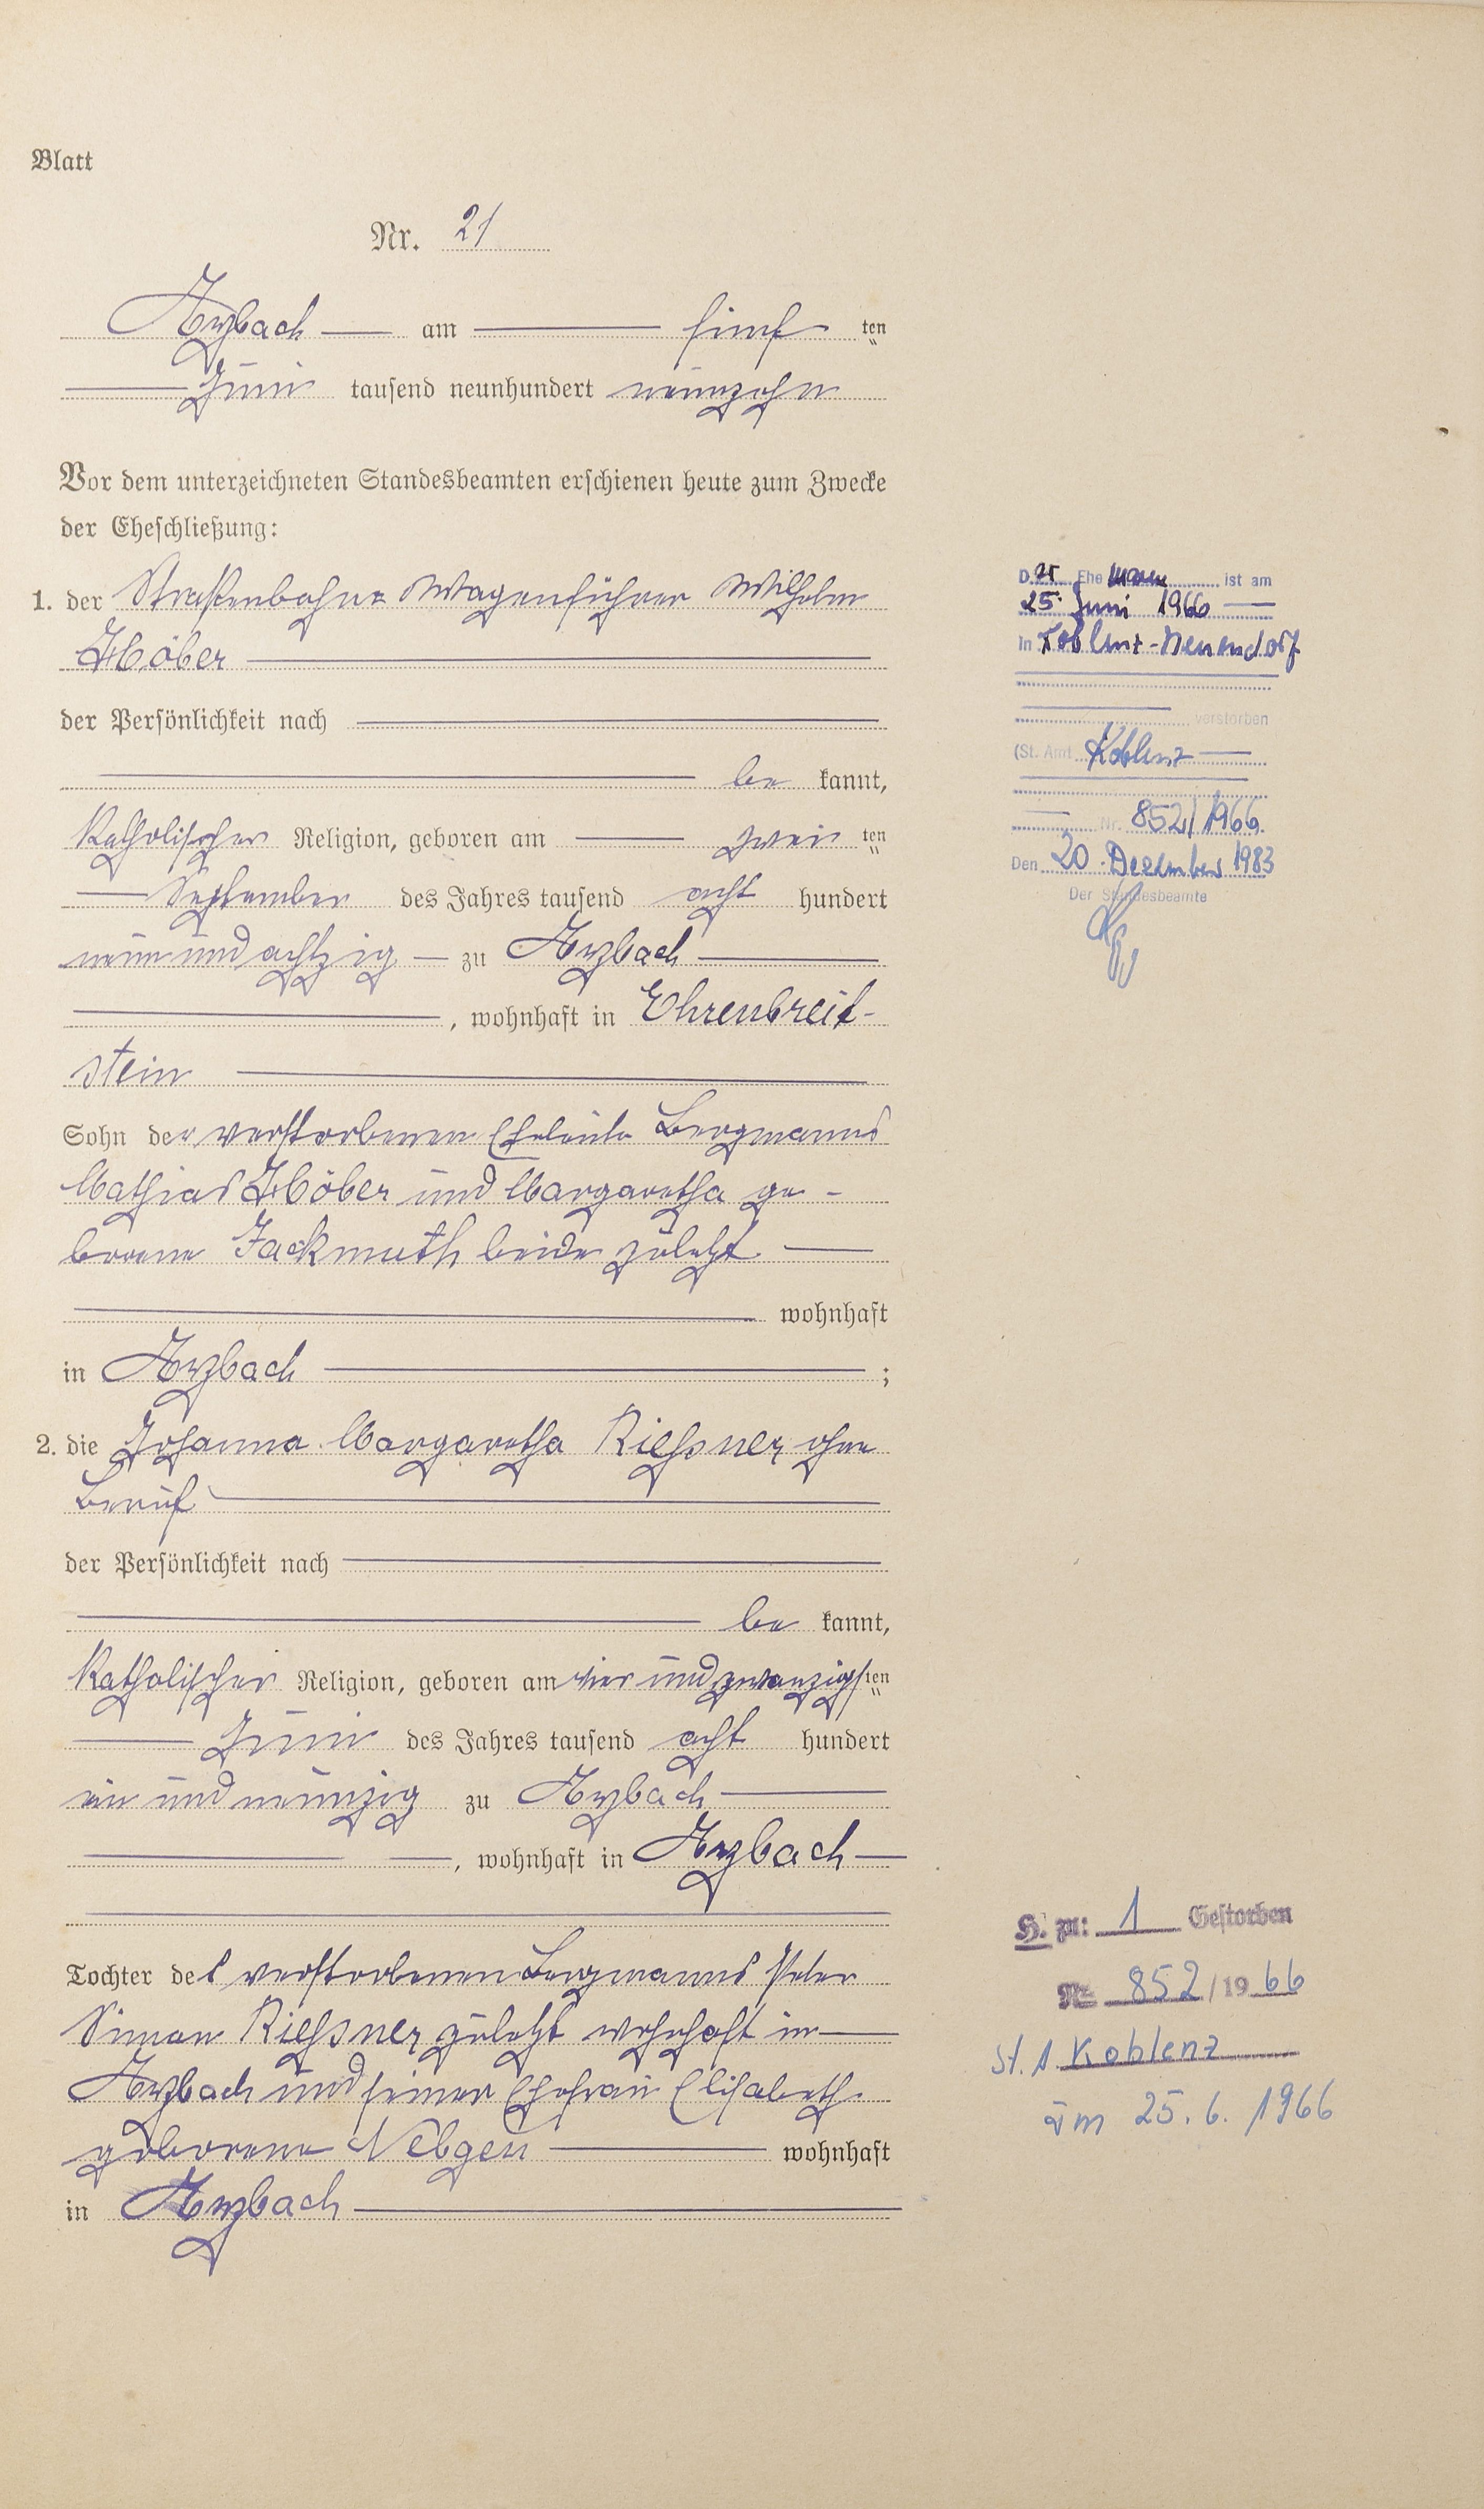 Blatt
Nr. 21
Arzbach am fünf ten
Juni tausend neunhundert neunzehn
Vor dem unterzeichneten Standesbeamten erschienen heute zum Zwecke
der Eheschließung:
1. der Straßenbahn Wagenführer Wilhelm
Höber
der Persönlichkeit nach
be kannt,
Katholischer Religion, geboren am zwei ten
September des Jahres tausend acht hundert
neun und achtzig zu Arzbach
, wohnhaft in Ehrenbreit-
stein
Sohn der verstorbenen Eheleute Bergmanns
Mathias Höber und Margaretha ge-
borene Jackmuth beide zuletzt
wohnhaft
in Arzbach ;
2. die Johanna Margaretha Rießner ohne
Beruf
der Persönlichkeit nach
be kannt,
Katholischer Religion, geboren am vier und zwanzigsten
Juni des Jahres tausend acht hundert
ein und neunzig zu Arzbach
, wohnhaft in Arzbach
Tochter des verstorbenen Bergmanns Peter
Simon Rießner zuletzt wohnhaft in
Arzbach und seiner Ehefrau Elisabeth
geborene Nebgen wohnhaft
in Arzbach
D. er Ehe mann ist am
25. Juni 1966
in Koblenz-Neuendorf
verstorben
(St. Amt Koblenz
Nr. 852/1966.
Den 20. Dezember 1983
Der Standesbeamte
H. zu: 1 Gestorben
Nr. 852/1966
St. A. Koblenz
am 25. 6. 1966